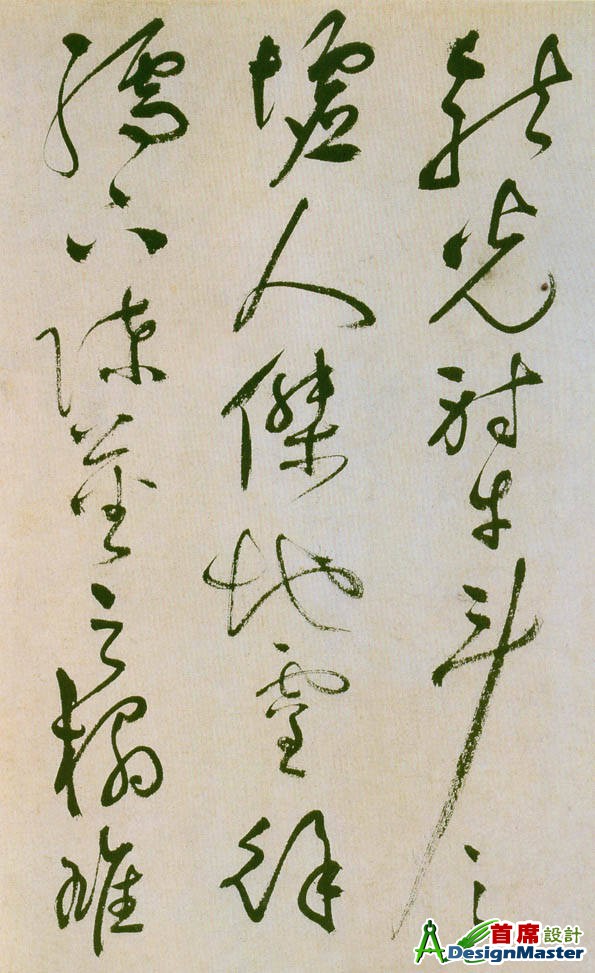 龍光射牛斗之
墟人傑地靈徐
孺下陳蕃之榻雄
首席設計
DesignMaster